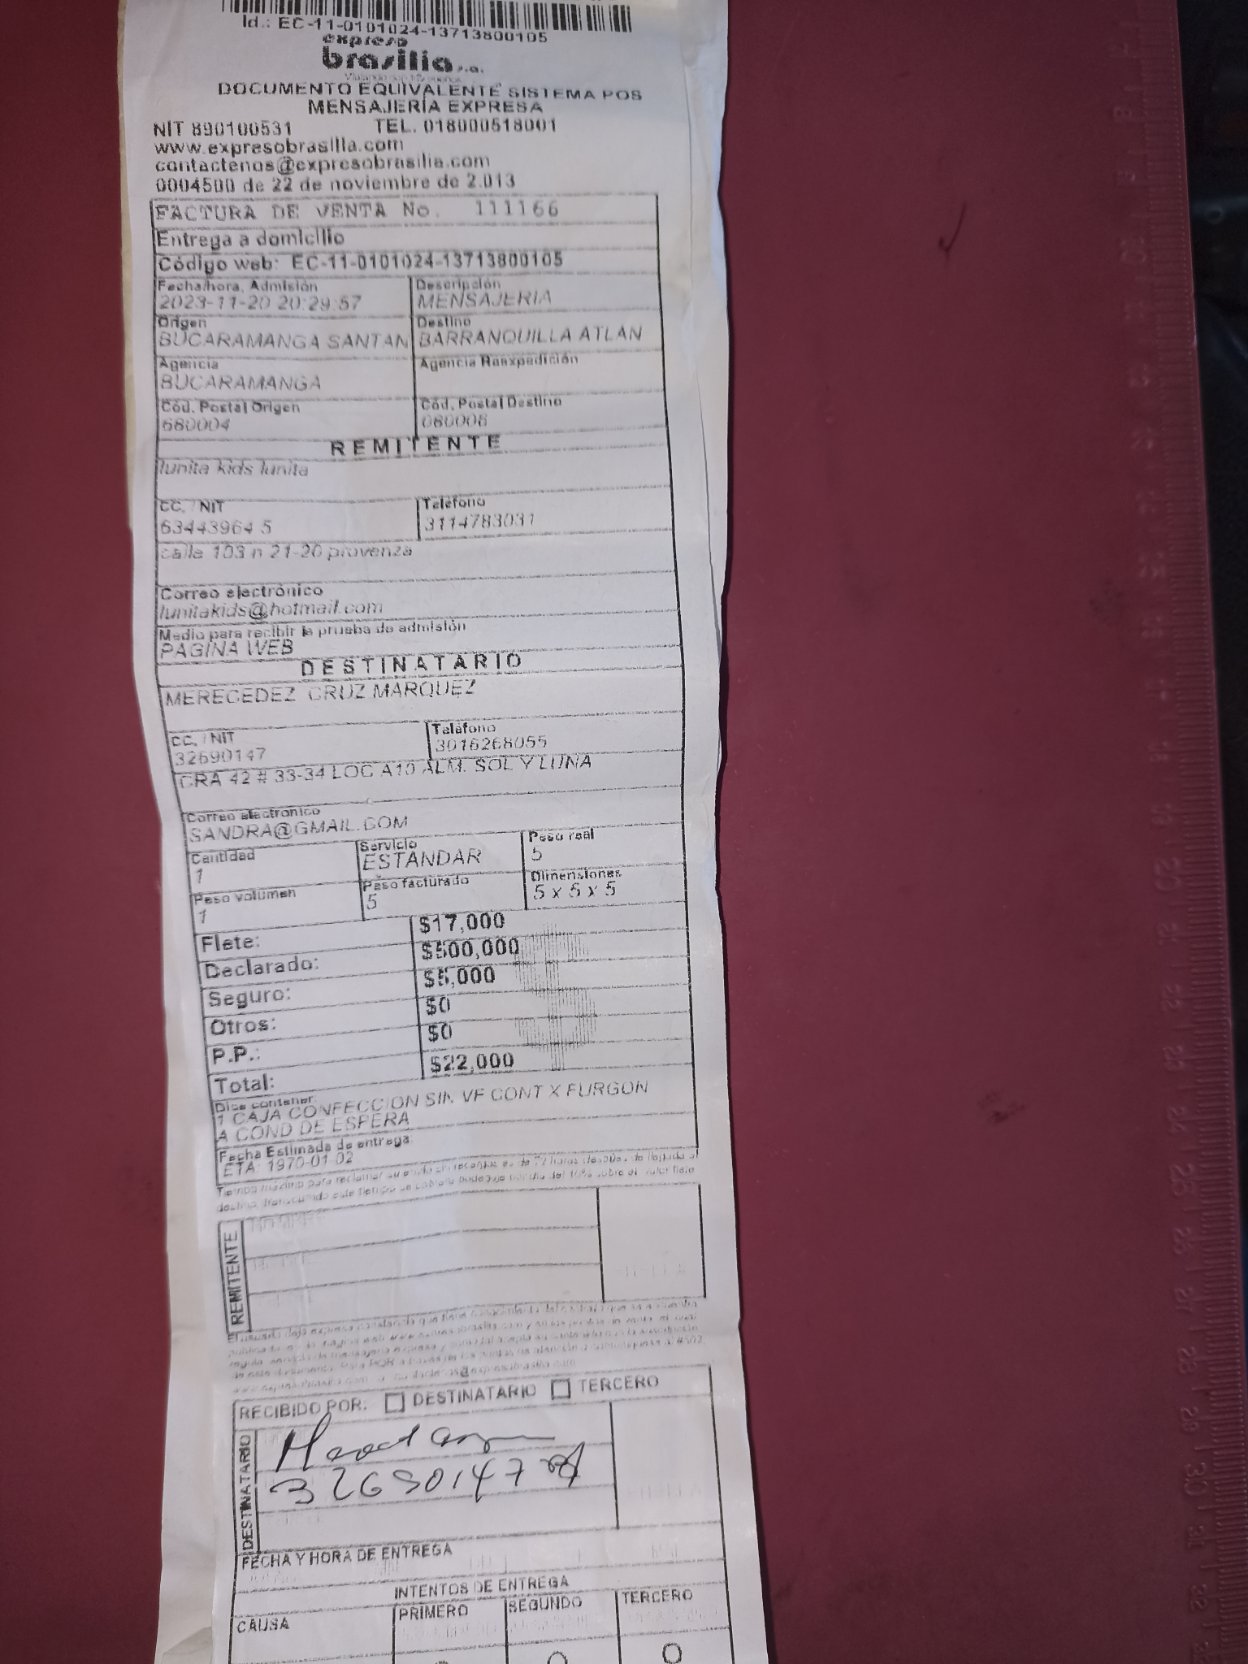 Id.: EC-11-0101024-13713800105
expreso
brasilia s.a.
DOCUMENTO EQUIVALENTE SISTEMA POS
MENSAJERÍA EXPRESA
NIT 890100531 TEL. 018000518001
www.expresobrasilia.com
contactenos@expresobrasilia.com
0004500 de 22 de noviembre de 2.013
FACTURA DE VENTA No. 111166
Entrega a domicilio
Código web: EC-11-0101024-13713800105
Fecha/hora, Admisión Descripción
2023-11-20 20:29:57 MENSAJERIA
Origen Destino
BUCARAMANGA SANTAN BARRANQUILLA ATLAN
Agencia Agencia Reexpedición
BUCARAMANGA
Cód. Postal Origen Cód. Postal Destino
680004 080006
REMITENTE
lunita kids lunita
CC. / NIT Teléfono
63443964 5 3114783031
calle 103 n 21-20 provenza
Correo electrónico
lunitakids@hotmail.com
Medio para recibir la prueba de admisión
PAGINA WEB
DESTINATARIO
MERECEDEZ CRUZ MARQUEZ
CC. / NIT Teléfono
32690147 3016268055
CRA 42 # 33-34 LOC A10 ALM. SOL Y LUNA
Correo electrónico
SANDRA@GMAIL.COM
Cantidad Servicio Peso real
1 ESTANDAR 5
Peso volumen Peso facturado Dimensiones
1 5 5 x 5 x 5
Flete: $17,000
Declarado: $500,000
Seguro: $5,000
Otros: $0
P.P.: $0
Total: $22,000
Dice contener:
1 CAJA CONFECCION SIN VF CONT X FURGON
A COND DE ESPERA
Fecha Estimada de entrega
ETA: 1970-01-02
REMITENTE
RECIBIDO POR: DESTINATARIO TERCERO
DESTINATARIO
32690147
FECHA Y HORA DE ENTREGA
INTENTOS DE ENTREGA
CAUSA PRIMERO SEGUNDO TERCERO